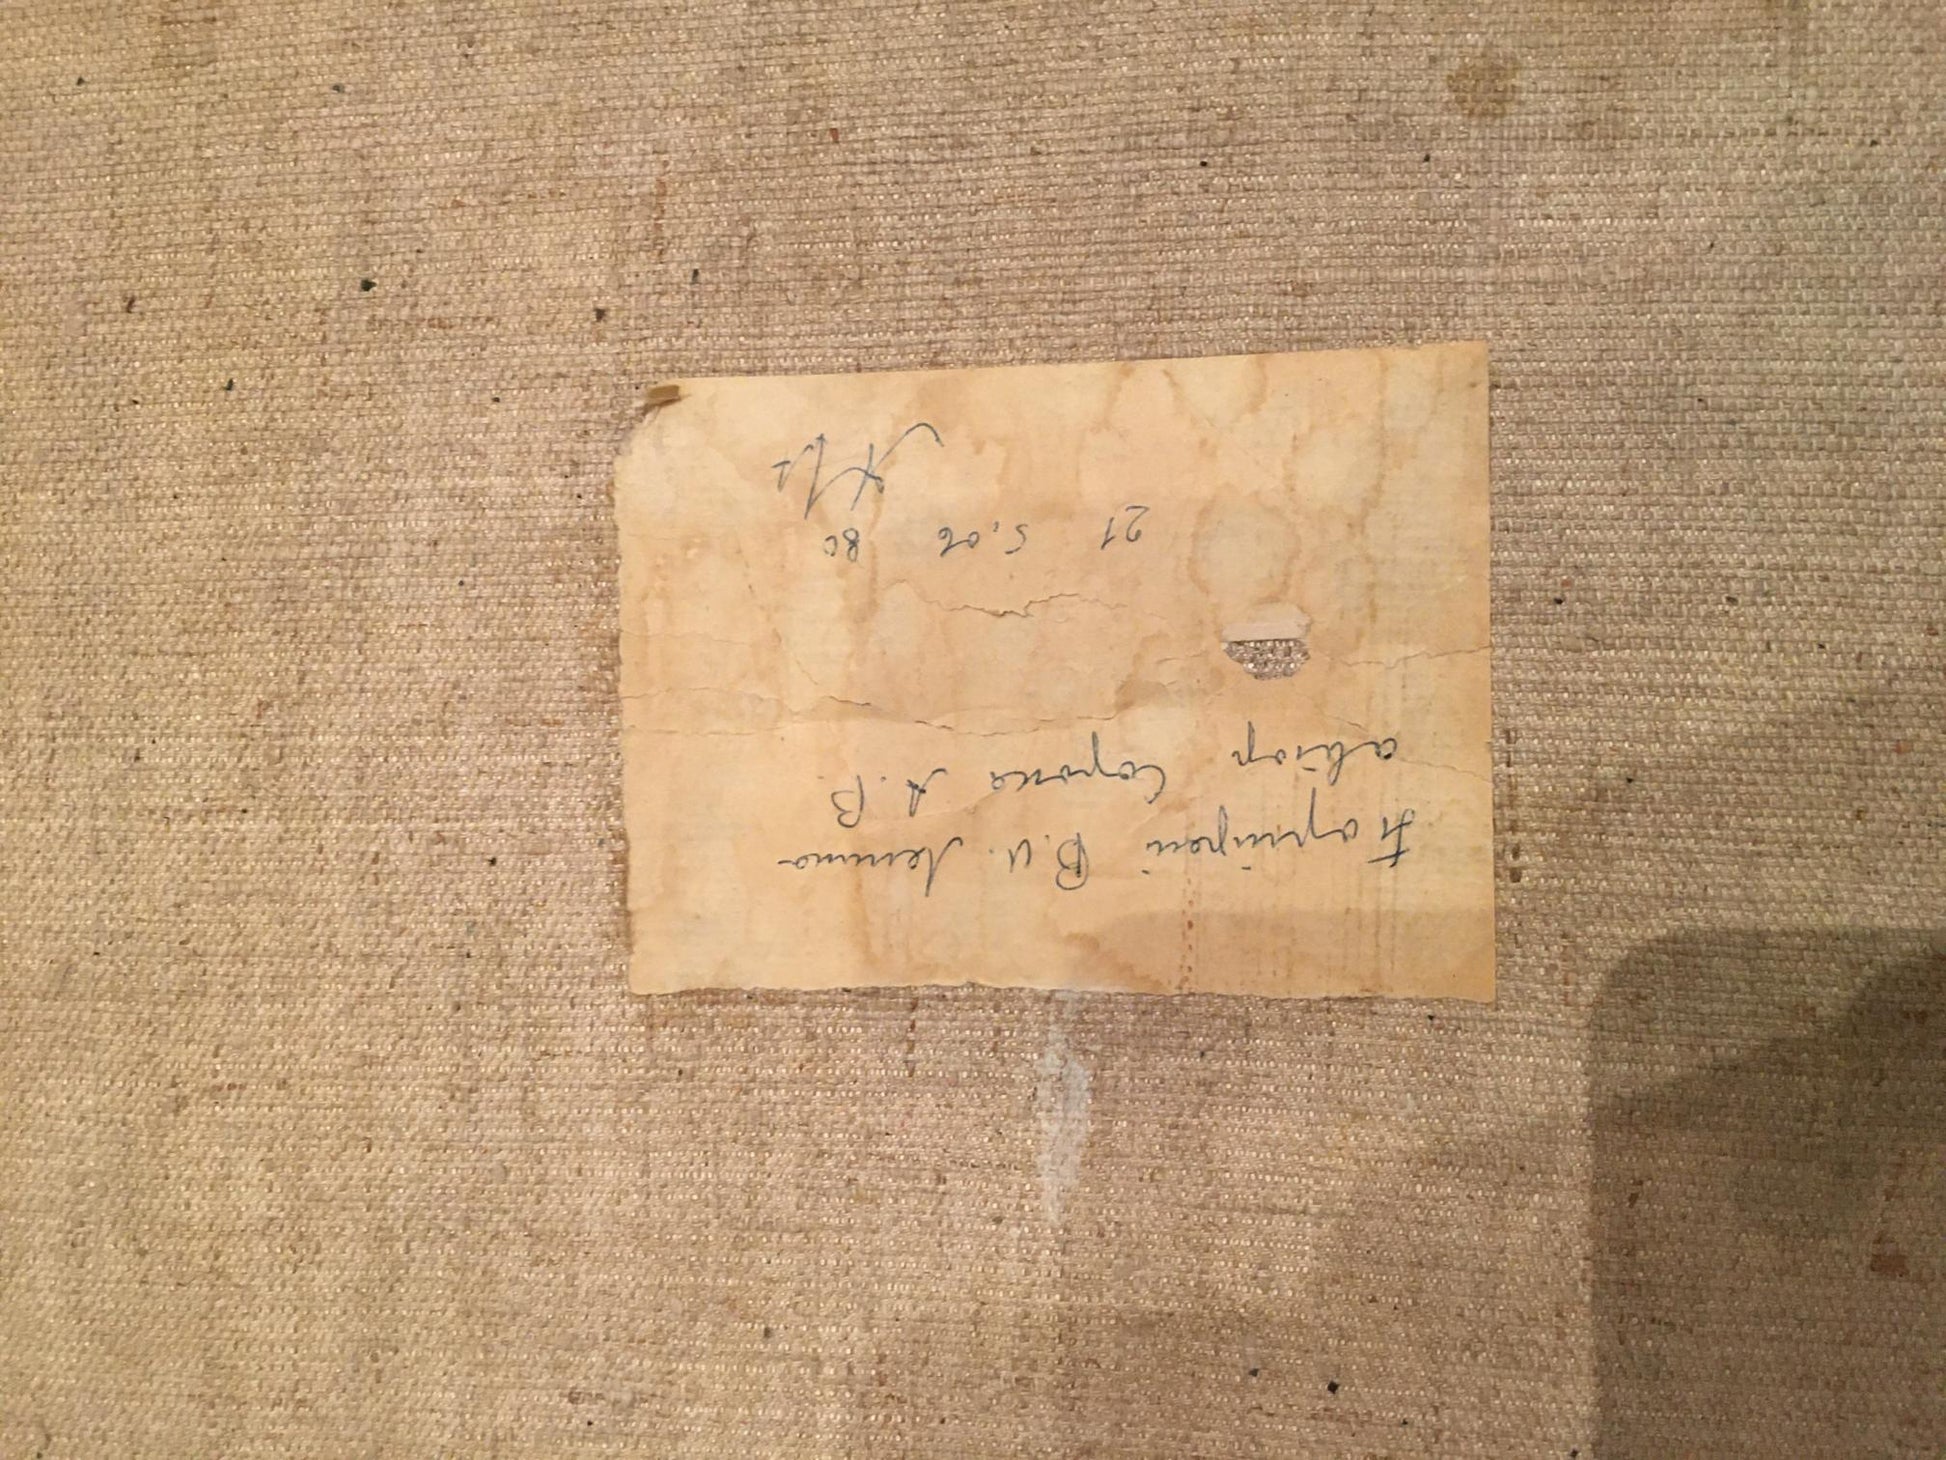 Портрет В.И. Ленина
автор Сорока А.В
21 5.06 80